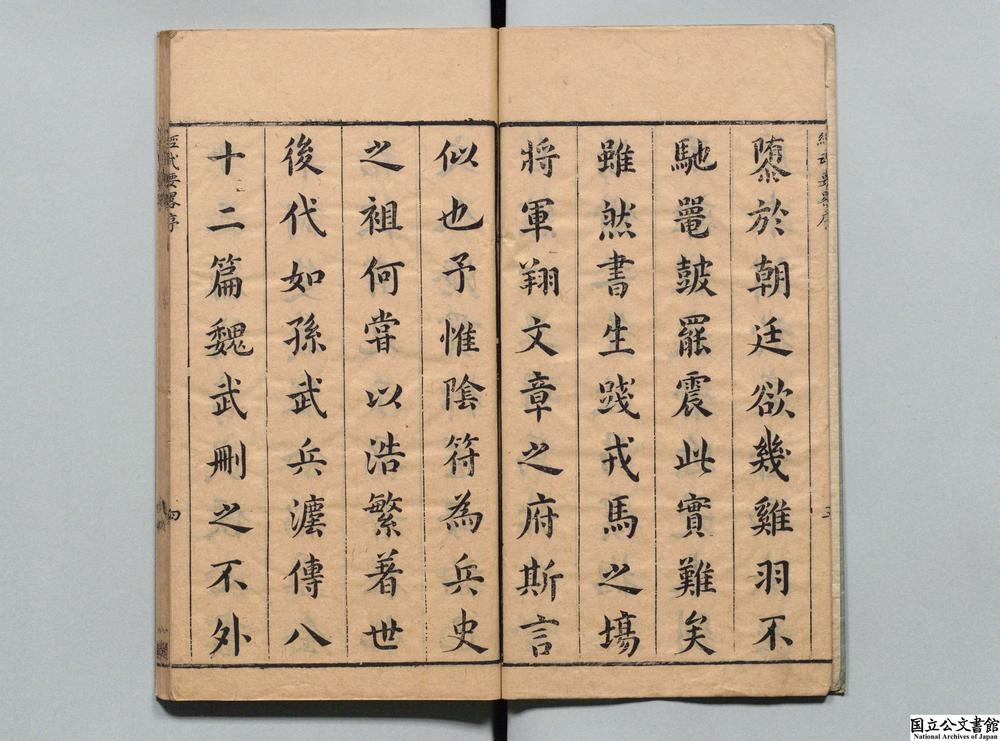 於朝廷欲幾雞羽不
馳鼍鼓罷震此實難矣
雖然書生踐戎馬之場
將軍翔文章之府斯言
似也予惟陰符為兵史
之祖何甞以浩繁著世
後代如孫武兵灋傳八
十二篇魏武刪之不外
經武要畧序
四
国立公文書館
National Archives of Japan